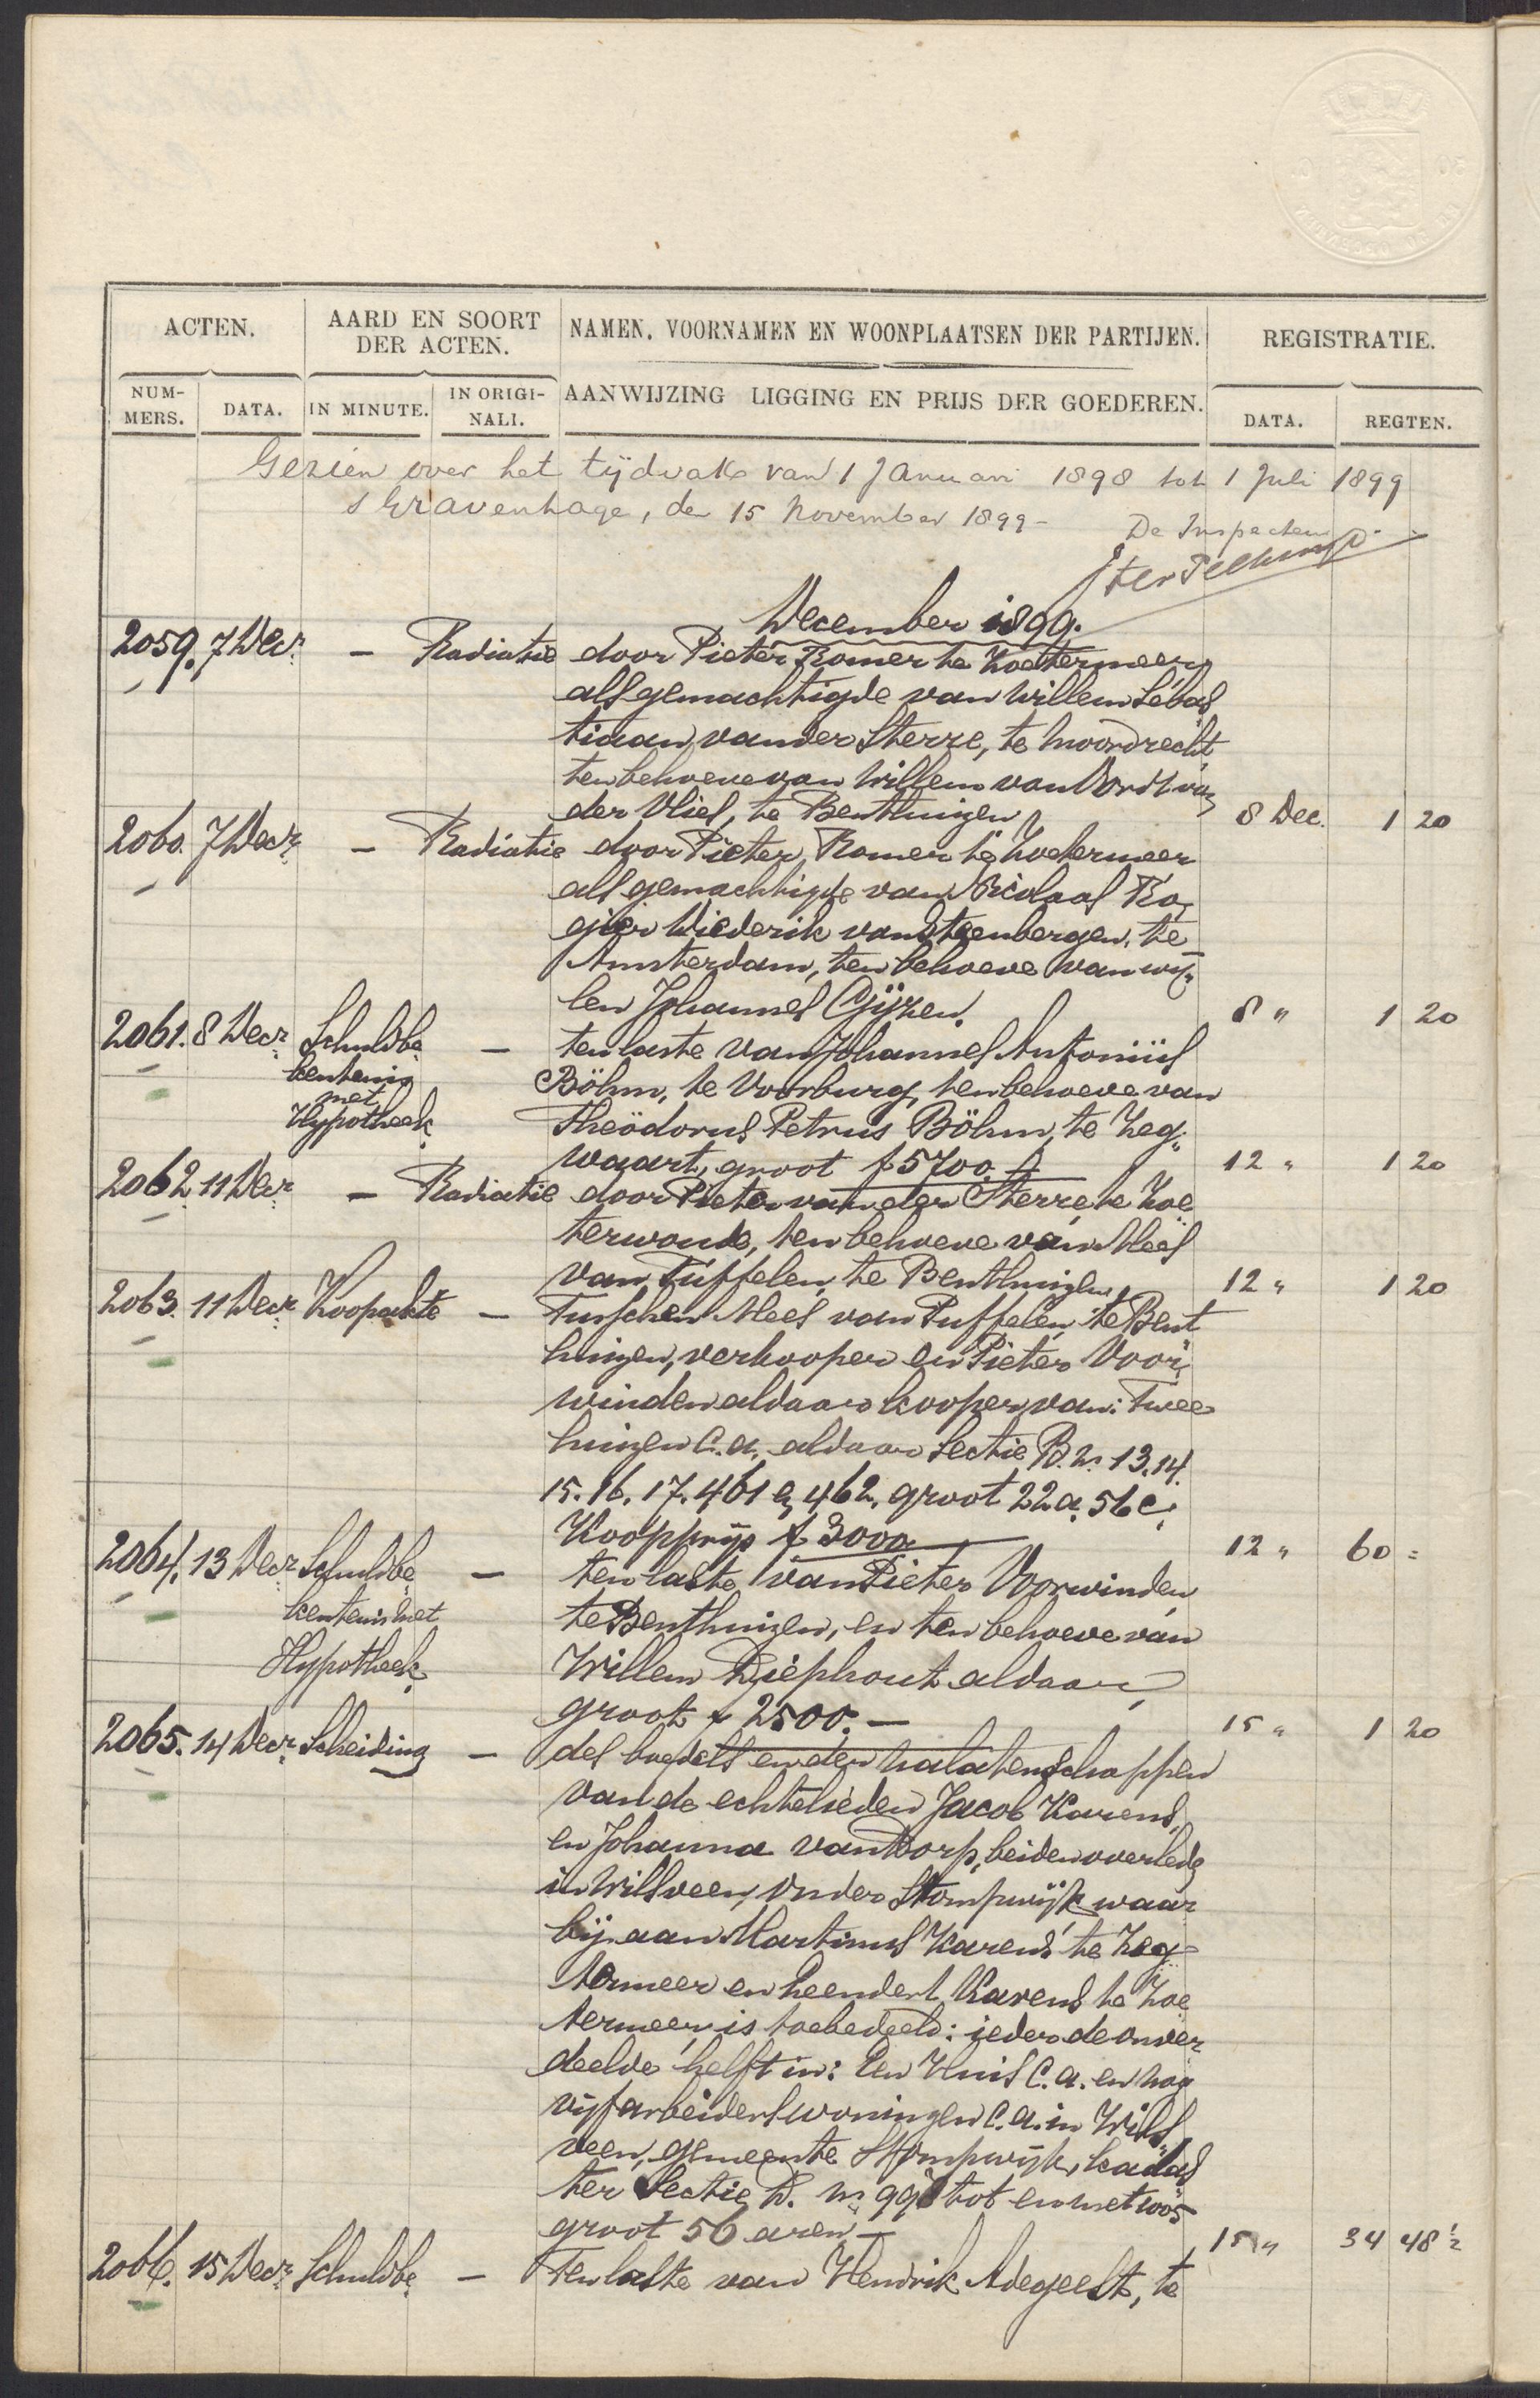 ACTEN.
AARD EN SOORT
DER ACTEN.
NAMEN, VOORNAMEN EN WOONPLAATSEN DER PARTIJEN.
REGISTRATIE.
NUM-
MERS.
DATA.
IN MINUTE.
IN ORIGI-
NALI.
AANWIJZING LIGGING EN PRIJS DER GOEDEREN.
DATA.
REGTEN.
Gezien over het tijdvak van 1 Januari 1898 tot 1 Juli 1899
s Gravenhage, den 15 November 1899 -
De Inspecteur
December 1899.
2059. 7 Decr. - Radiatie door Pieter Romer te Zoetermeer,
als gemachtigde van Willem Sebas
tiaan van der Sterre, te Moordrecht,
ten behoeve van Willem van Dordt van
der Vlies, te Benthuizen 8 Dec. 1 20
2060. 7 Decr. - Radiatie door Pieter Romer te Zoetermeer
als gemachtigde van Nicolaas Ro„
gier Diederik van Steenbergen, te
Amsterdam, ten behoeve van wij„
len Johannes Gijzen. 8 „ 1 20
2061. 8 Decr. Schuldbe - ten laste van Johannes Antoniüs
kentenis Böhm, te Voorburg, ten behoeve van
met
Hypotheek. Theödorus Petrus Böhm, te Zeg„
waart, groot f 5700.- 12 „ 1 20
2062 11 Decr. - Radiatie door Pieter van der Sterre, te Zoe
terwoude, ten behoeve van Mees
van Puffelen, te Benthuizen 12 „ 1 20
2063. 11 Decr. Koopakte - Tusschen Mees van Puffelen, te Bent
huizen, verkooper en Pieter Voor„
winden aldaar kooper van: Twee
huizen c.a. aldaar Sectie B. nr. 13. 14.
15. 16. 17. 461 & 462, groot 22 a. 56 c.
Koopprijs f 3000.- 12 „ 60 =
2064. 13 Decr. Schuldbe - ten laste van Pieter Voorwinden
kentenis met te Benthuizen, en ten behoeve van
Hypotheek. Willem Diephout aldaar,
groot f 2500.- 15 „ 1 20
2065. 14 Decr. Scheiding - des boedels en den nalatenschappen
van de echtelieden Jacob Karens,
en Johanna van Dorp, beiden overleden
in Wilsveen, onder Stompwijk waar
bij aan Martinus Karens te Zeg=
termeer en Leendert Karens te Zoe
termeer, is toebedeeld: ieder de onver
deelde helft in: Een Huis c.a. en nog
vijf arbeiderswoningen c.a. in Wils„
veen, gemeente Stompwijk, kadas
ter Sectie D. nr. 998 tot en met 1005
groot 56 aren - 15 „ 34 48½
2066. 15 Decr. Schuldbe - Ten laste van Hendrik Adegeest, te